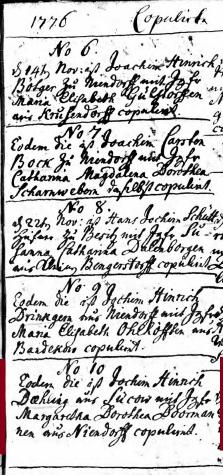 1776 Copulirte
No 6.
d 14t Nov: ist Joachim Hinrich
Bötger zu Niendorff mit Jgfr
Maria Elisabeth
aus Krusendorff copulirt
No 7.
Eodem die ist Joachim Carsten
Bock zu Niendorff mit Jgfr
Catharina Magdalena Dorothea
daselbst copulirt.
No 8.
d 22t Nov: ist Hans Jochim
zu mit Jgfr Su-
sanna Catharina
aus Bengerstorff copulirt
No 9
Eodem die ist Jochim Hinrich
aus Niendorff mit Jgfr
Maria Elisabeth Ohlhöffen aus
Bandekow copulirt.
No 10
Eodem die ist Jochim Hinrich
aus Lucow mit Jgfr
Margaretha Dorothea Doorman-
nen aus Niendorff copulirt.